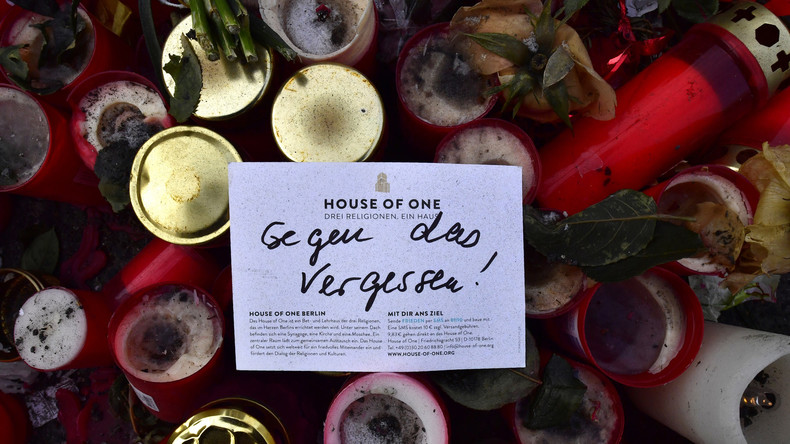 HOUSE OF ONE
DREI RELIGIONEN, EIN HAUS
Gegen das
Vergessen!
HOUSE OF ONE BERLIN
Das House of One ist ein Bet- und Lehrhaus der drei Religionen,
das im Herzen Berlins errichtet werden wird. Unter seinem Dach
befinden sich eine Synagoge, eine Kirche und eine Moschee. Ein
zentraler Raum lädt zum gemeinsamen Austausch ein. Das House
of One setzt sich weltweit für ein friedvolles Miteinander ein und
fördert den Dialog der Religionen und Kulturen.
MIT DIR ANS ZIEL
Sende FRIEDEN per SMS an 81190 und baue mit.
Eine SMS kostet 10 € zzgl. Versandgebühren.
9,83 € gehen direkt an das House of One.
House of One | Friedrichsgracht 53 | D-10178 Berlin
Tel +49 (0)30 20 60 88 80 | info@house-of-one.org
WWW.HOUSE-OF-ONE.ORG